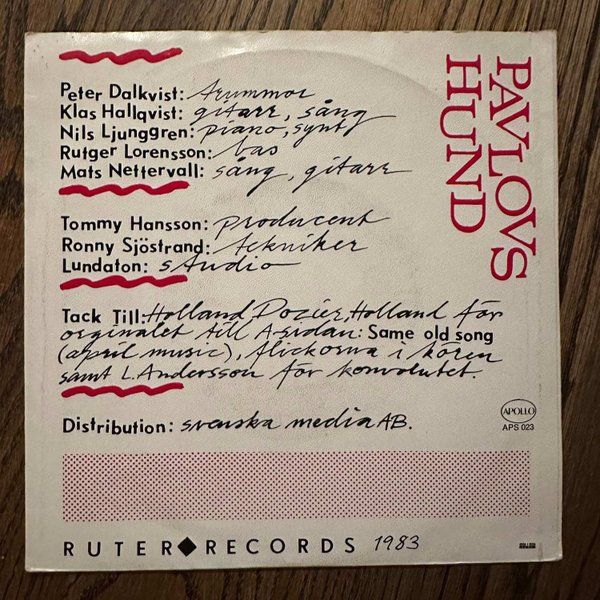 Peter Dalkvist: trummor
Klas Hallqvist: gitarr, sång
Nils Ljunggren: piano, synt
Rutger Lorensson: bas
Mats Nettervall: sång, gitarr
Tommy Hansson: producent
Ronny Sjöstrand: tekniker
Lundaton: studio
Tack Till: Holland, Dozier, Holland för
orginalet till A-sidan: Same old song
(april music), flickorna i kören
samt L. Andersson för konvolutet.
Distribution: svenska media AB.
RUTER RECORDS 1983
PAVLOVS
HUND
APOLLO
APS 023